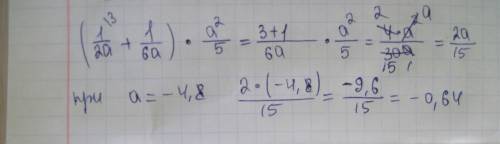 (1/2a ^3 + 1/6a) • a²/5 = 3+1/6a • a²/5 = 4•a²/30a = 2a/15
при a = -4,8 2•(-4,8)/15 = -9,6/15 = -0,64